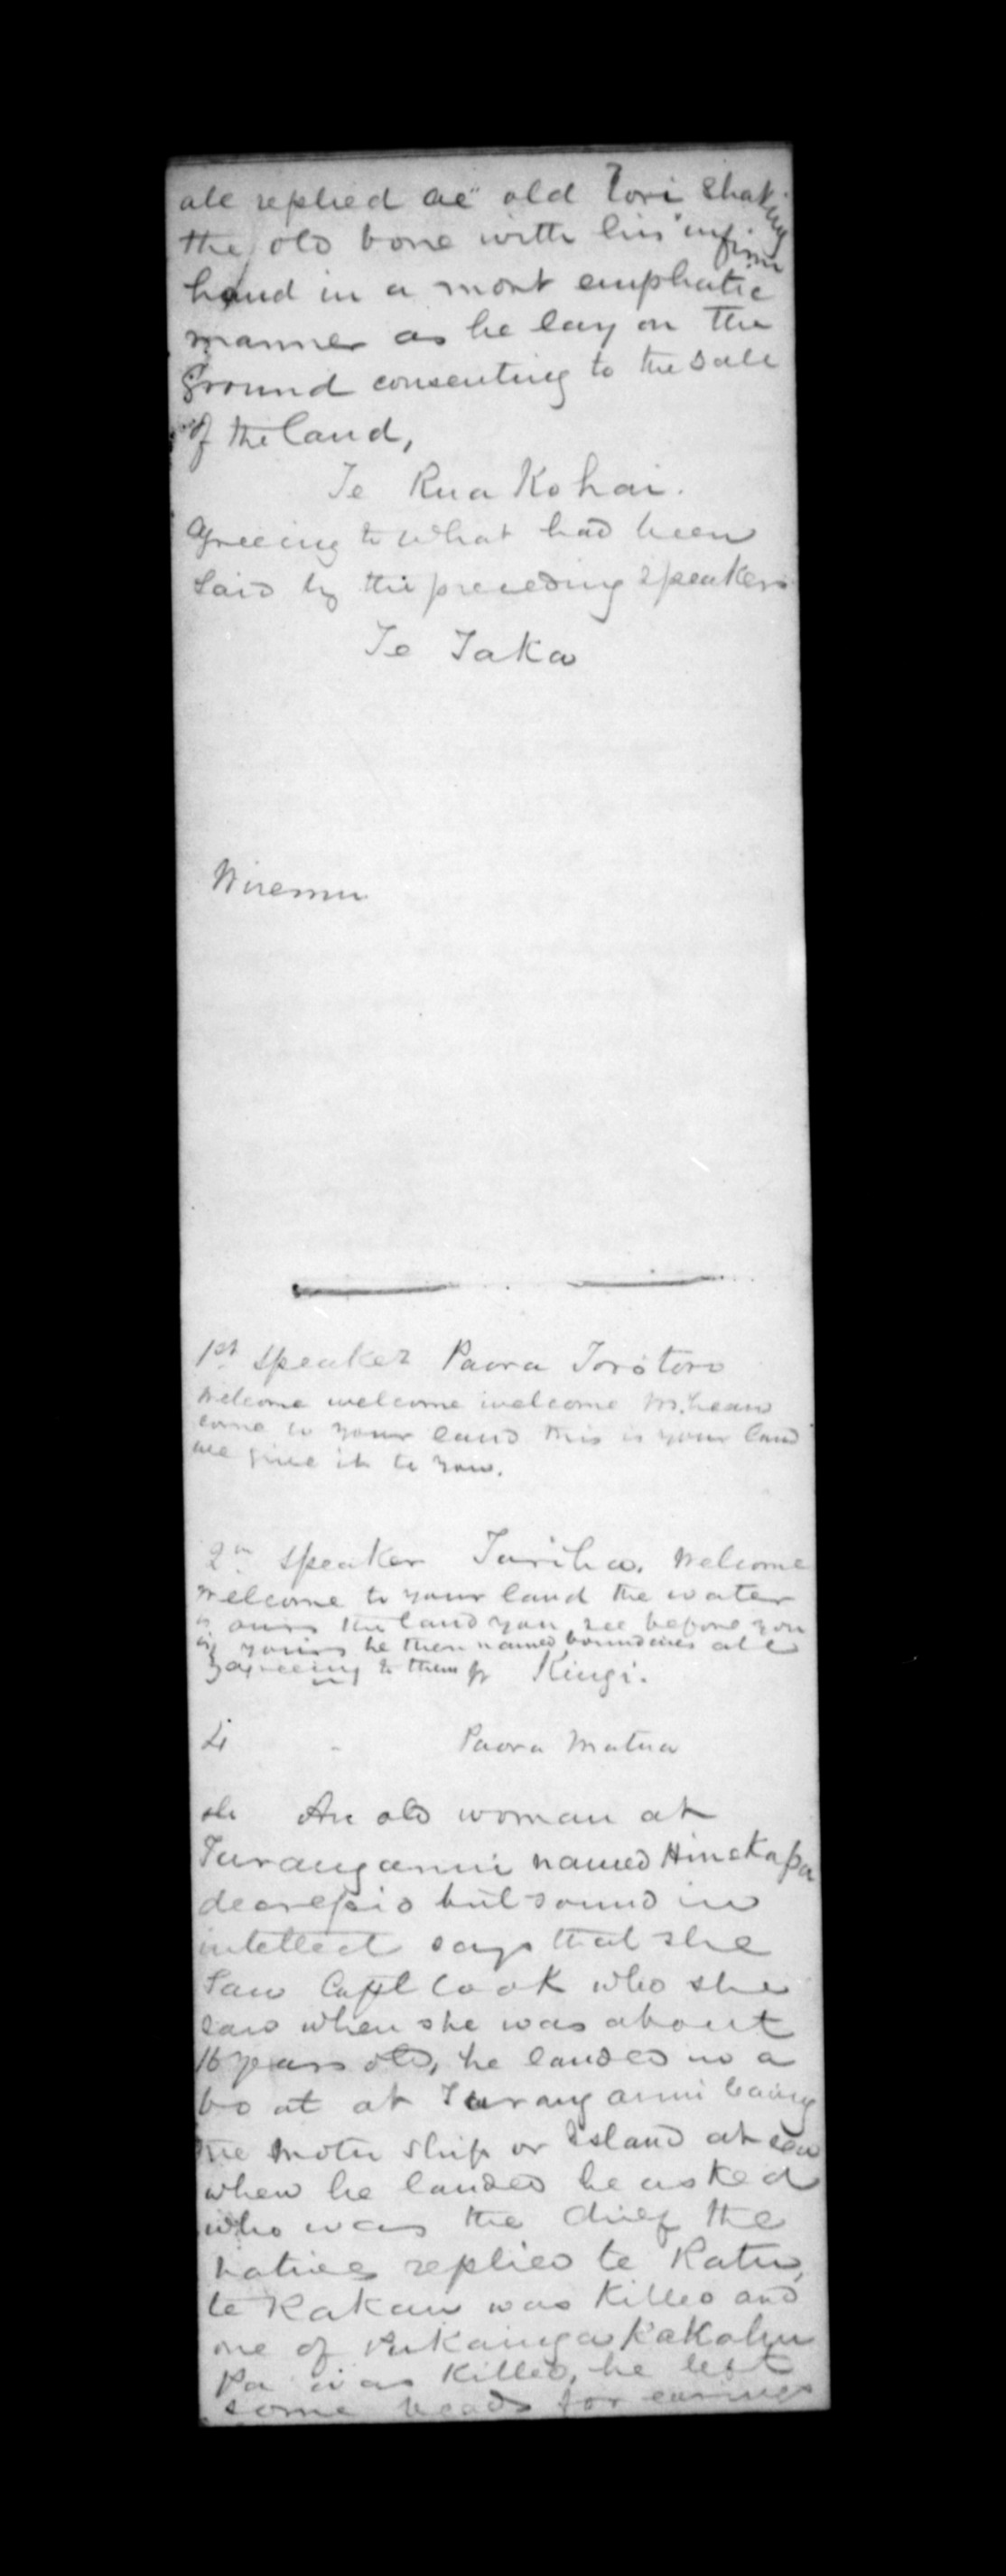 all replied ae" old Tori shaking
the old bone with his infirm
hand in a most emphatic
manner as he lay on the
ground consenting to the sale
of the land,
Te Rua Kohai.
Agreeing to what had been
said by the preceding speakers
Te Taka
Wiremu
1st speaker Paora Torotoro
Welcome welcome welcome McLean
come to your land this is your land
we give it to you.
2n speaker Tariha. Welcome
welcome to your land the water
is ours the land you see before you
is yours he then named boundaries all
3 agreeing to them Kingi.
4 - Paora Matua
An old woman at
Turanganui named Hinekapa
decrepid but sound in
intellect says that she
saw Captl Cook who she
saw when she was about
16 years old, he landed in a
boat at Turanganui
the Motu ship or Island at sea
when he landed he asked
who was the chief the
natives replied te Ratu,
te Rakau was killed and
one of Pukainga Kakahu
Pa was killed, he left
some beads for earrings